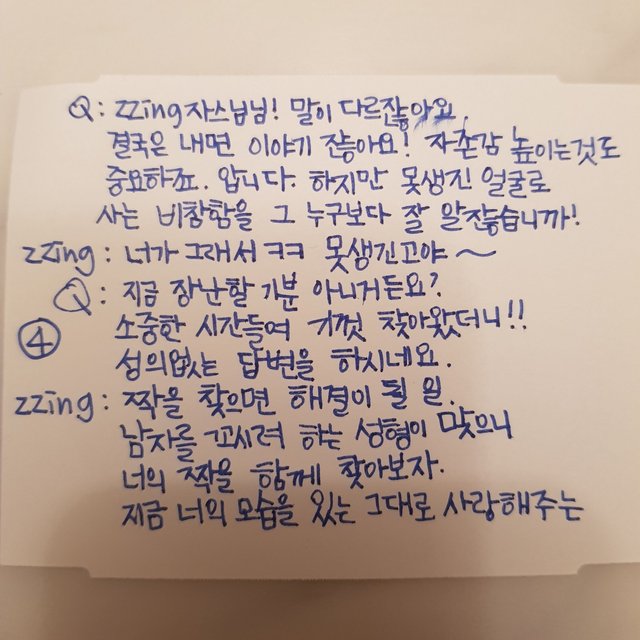 Q: zzing자스님님! 말이 다르잖아요.
결국은 내면 이야기 잖아요! 자존감 높이는것도
중요하죠. 압니다. 하지만 못생긴 얼굴로
사는 비참함을 그 누구보다 잘 알잖습니까!
zzing: 너가 그래서 ㅋㅋ 못생긴고야~
Q: 지금 장난할 기분 아니거든요?
④ 소중한 시간들여 기껏 찾아왔더니!!
성의없는 답변을 하시네요.
zzing: 짝을 찾으면 해결이 될 일.
남자를 꼬시려 하는 성형이 맞으니
너의 짝을 함께 찾아보자.
지금 너의 모습을 있는 그대로 사랑해주는